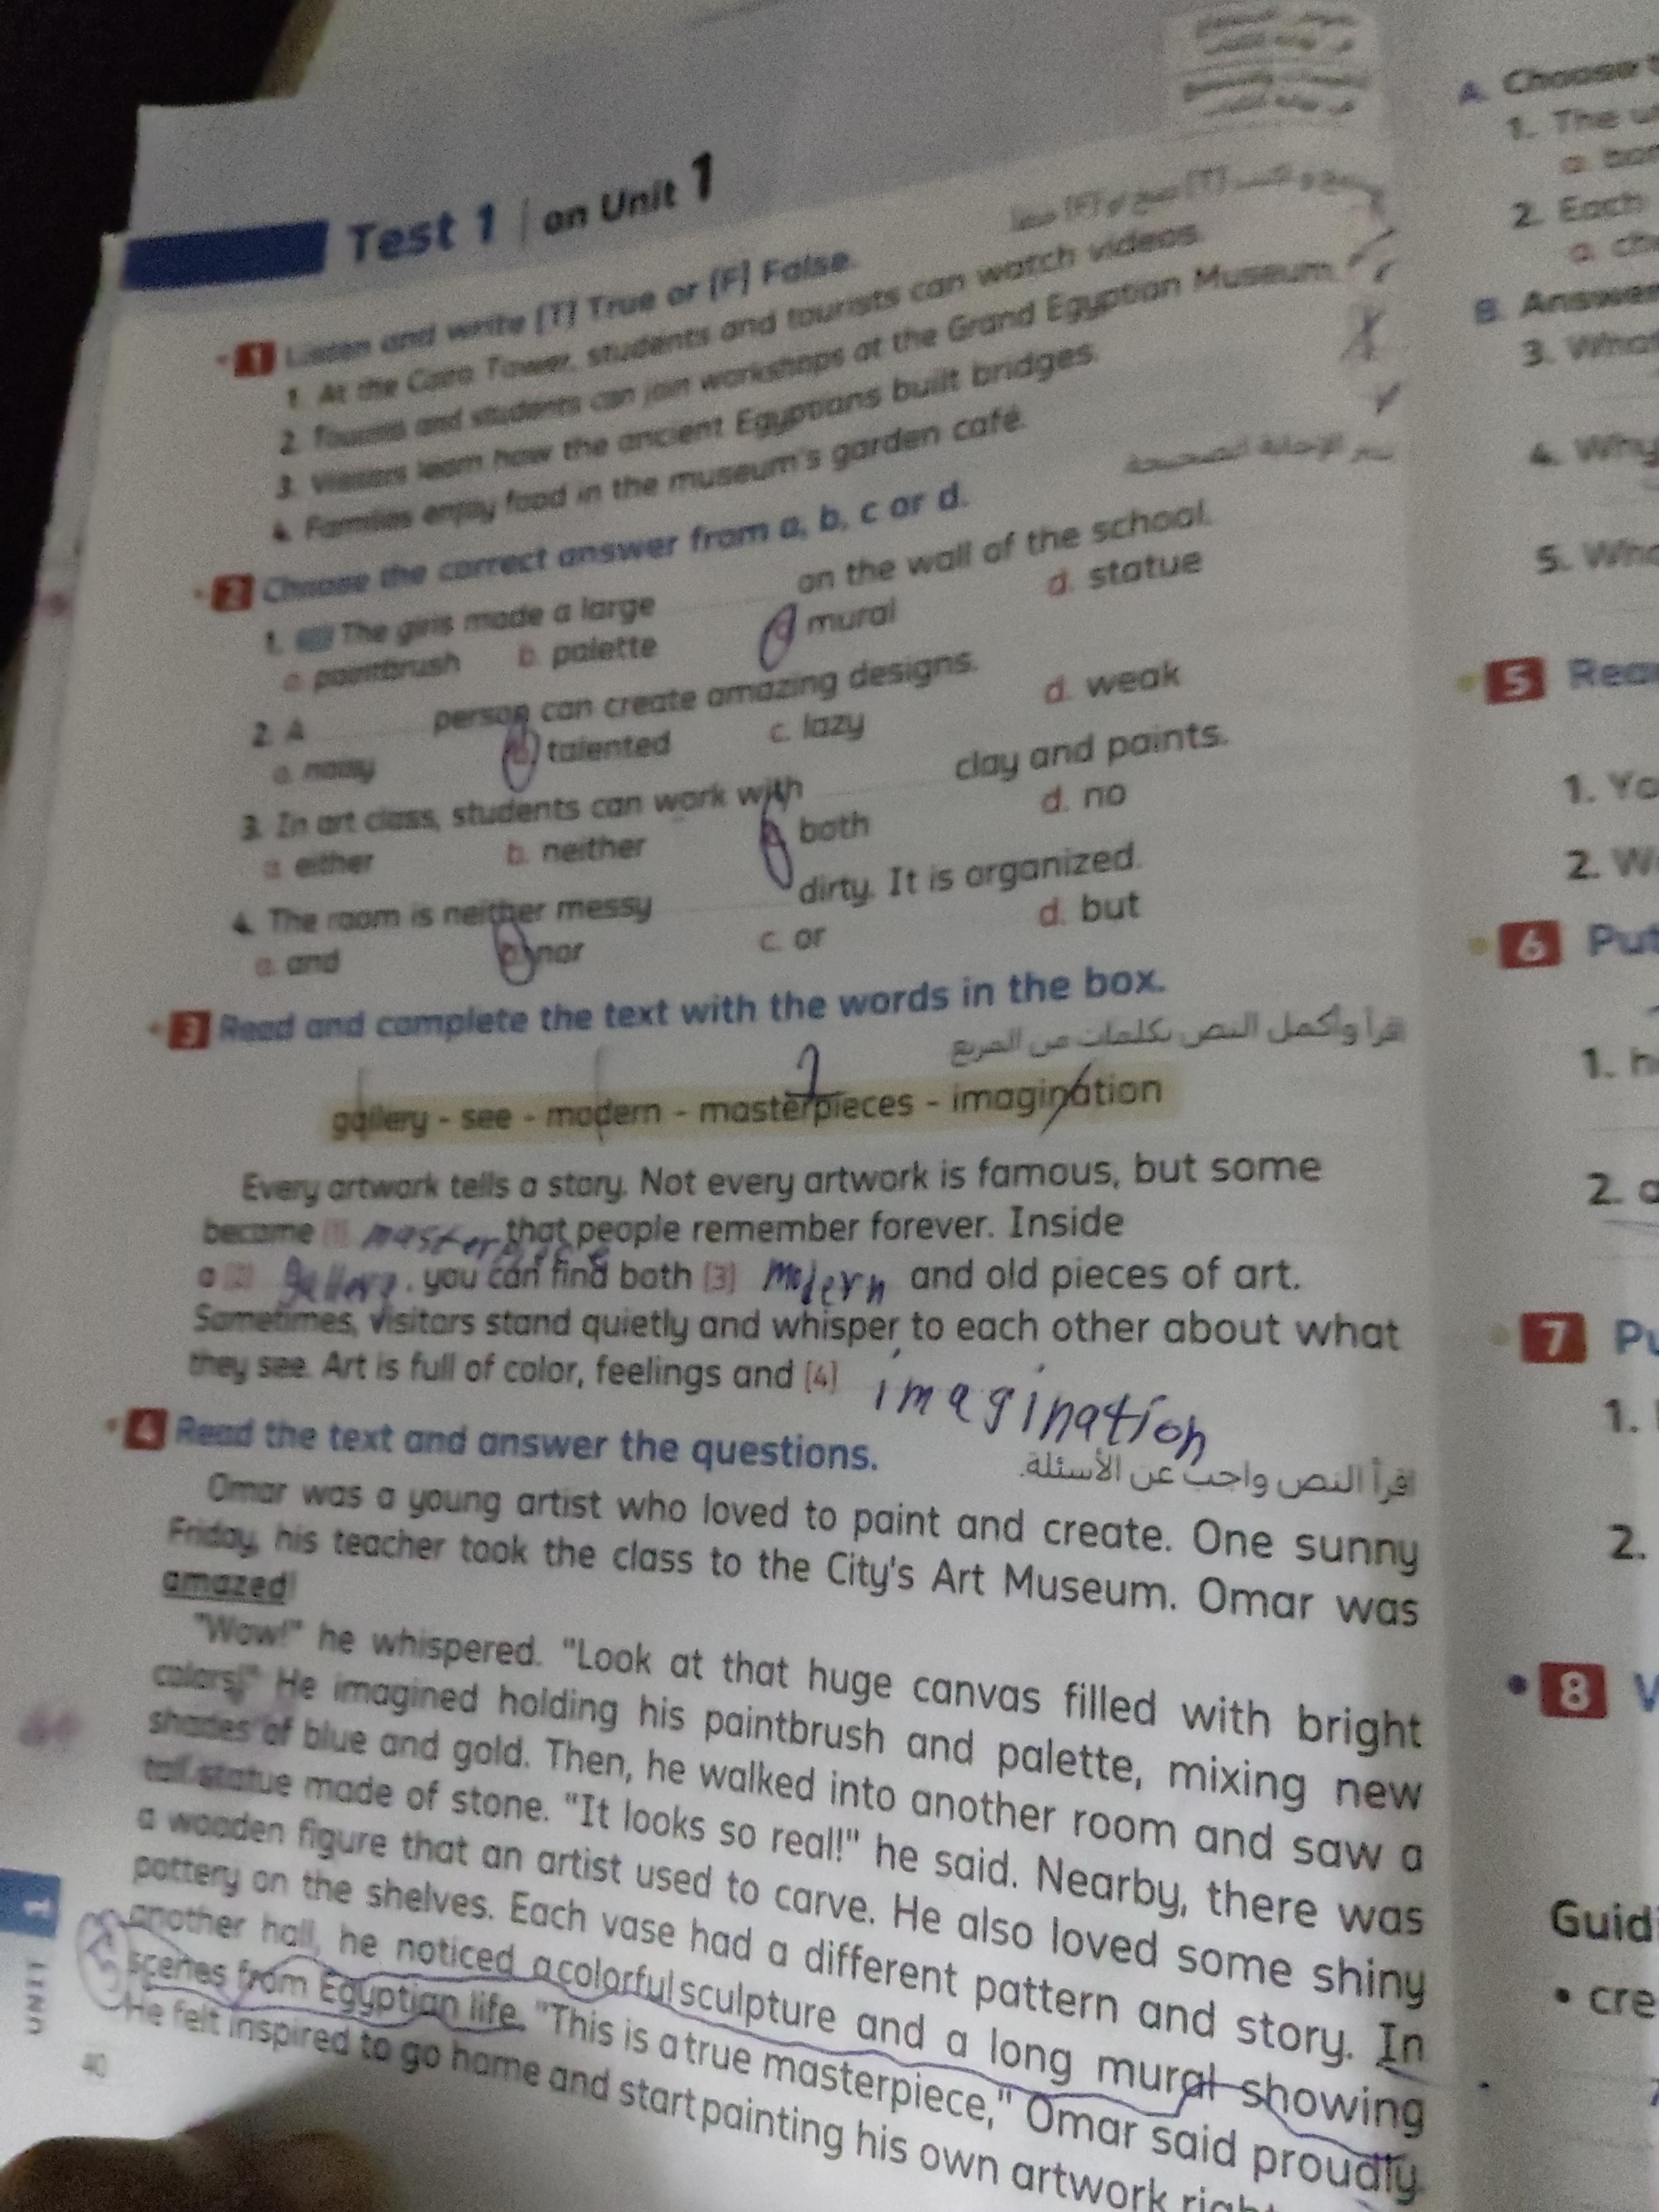 Test 1 | on Unit 1
1 Listen and write [T] True or [F] False.
1. At the Cairo Tower, students and tourists can watch videos.
2. Tourists and students can join workshops at the Grand Egyptian Museum.
3. Visitors learn how the ancient Egyptians built bridges.
4. Families enjoy food in the museum's garden café.
2 Choose the correct answer from a, b, c or d.
الإجابة الصحيحة
1. The girls made a large on the wall of the school.
a. paintbrush b. palette c. mural d. statue
2. A person can create amazing designs.
a. noisy b. talented c. lazy d. weak
3. In art class, students can work with clay and paints.
a. either b. neither c. both d. no
4. The room is neither messy dirty. It is organized.
a. and b. nor c. or d. but
3 Read and complete the text with the words in the box.
اقرأ وأكمل النص بكلمات من المربع
gallery - see - modern - masterpieces - imagination
Every artwork tells a story. Not every artwork is famous, but some
become (1) masterpiece that people remember forever. Inside
a (2) , you can find both (3) modern and old pieces of art.
Sometimes, visitors stand quietly and whisper to each other about what
they see. Art is full of color, feelings and (4) imagination
4 Read the text and answer the questions.
اقرأ النص واجب عن الأسئلة.
Omar was a young artist who loved to paint and create. One sunny
Friday, his teacher took the class to the City's Art Museum. Omar was
amazed!
"Wow!" he whispered. "Look at that huge canvas filled with bright
colors!" He imagined holding his paintbrush and palette, mixing new
shades of blue and gold. Then, he walked into another room and saw a
tall statue made of stone. "It looks so real!" he said. Nearby, there was
a wooden figure that an artist used to carve. He also loved some shiny
pottery on the shelves. Each vase had a different pattern and story. In
another hall, he noticed a colorful sculpture and a long mural showing
scenes from Egyptian life. "This is a true masterpiece," Omar said proudly.
He felt inspired to go home and start painting his own artwork
1
UNIT
40
A. Choose
1. The
a.
2. Each
a.
B. Answer
3. What
4. Why
5.
5
1.
2.
6 Put
1.
2.
7
1.
2.
8
Guid
• cre